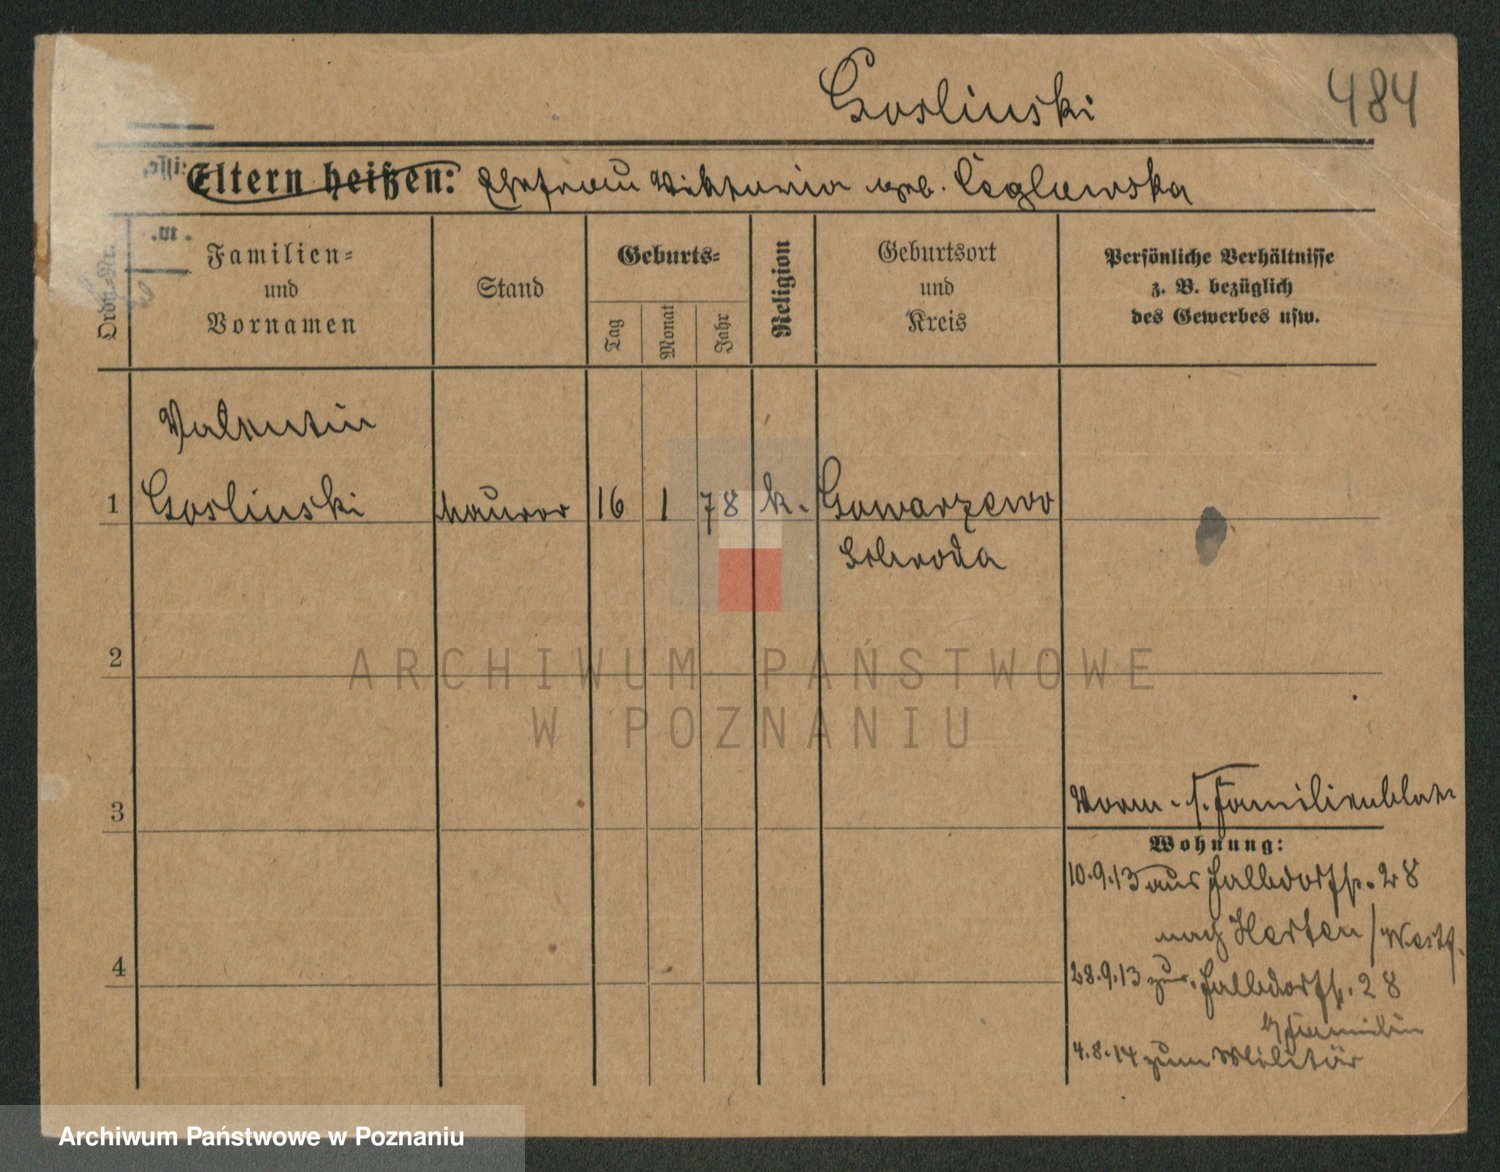 Goslinski
484
Eltern heißen: Ehefrau Viktoria geb. Ceglowska
Ordn.-Nr.
Familien-
und
Vornamen
Stand
Geburts-
Tag
Monat
Jahr
Religion
Geburtsort
und
Kreis
Persönliche Verhältnisse
z. B. bezüglich
des Gewerbes usw.
Valentin
1 Goslinski Maurer 16 1 78 k. Gowarzewo
Schroda
2
3
Vorm. s. Familienblatt
Wohnung:
10.9.13 aus Halbdorfstr. 28
nach Herten / Westf.
4
28.9.13 zur. Halbdorfstr. 28
Familie
4.8.14 zum Militär
ARCHIWUM PAŃSTWOWE
W POZNANIU
Archiwum Państwowe w Poznaniu